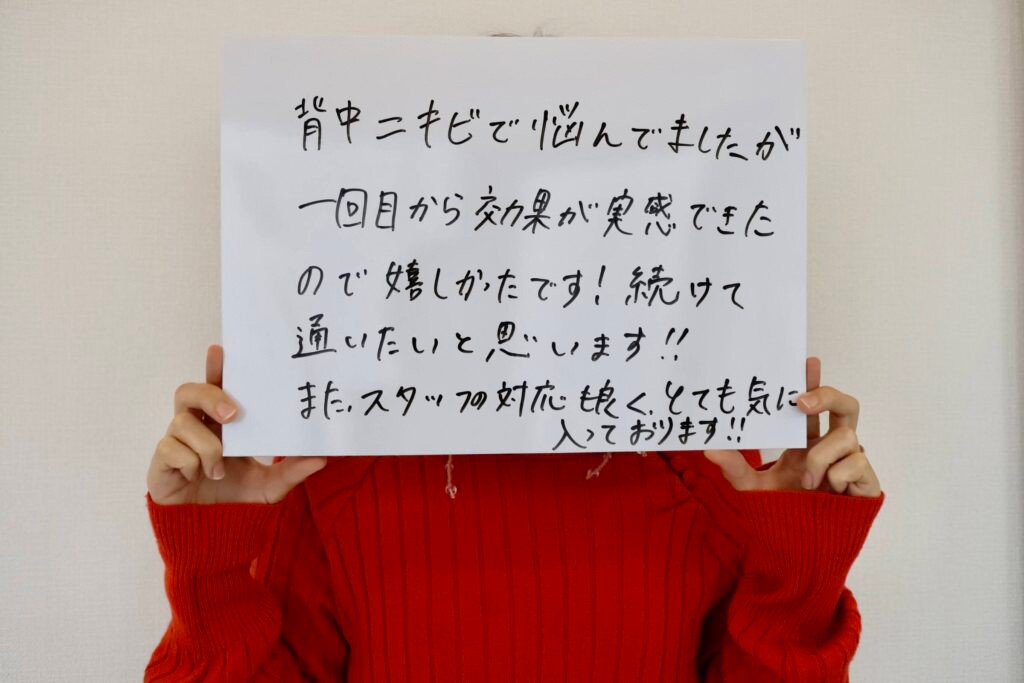 背中ニキビで悩んでましたが
一回目から効果が実感できた
ので嬉しかったです!続けて
通いたいと思います!!
また、スタッフの対応も良く、とても気に
入っております!!